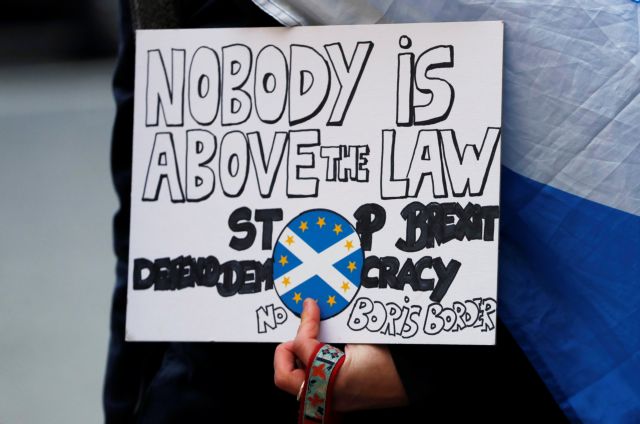 NOBODY iS
ABOVE THE LAW
STOP BREXIT
DEFEND DEMOCRACY
NO BORiS BORDER